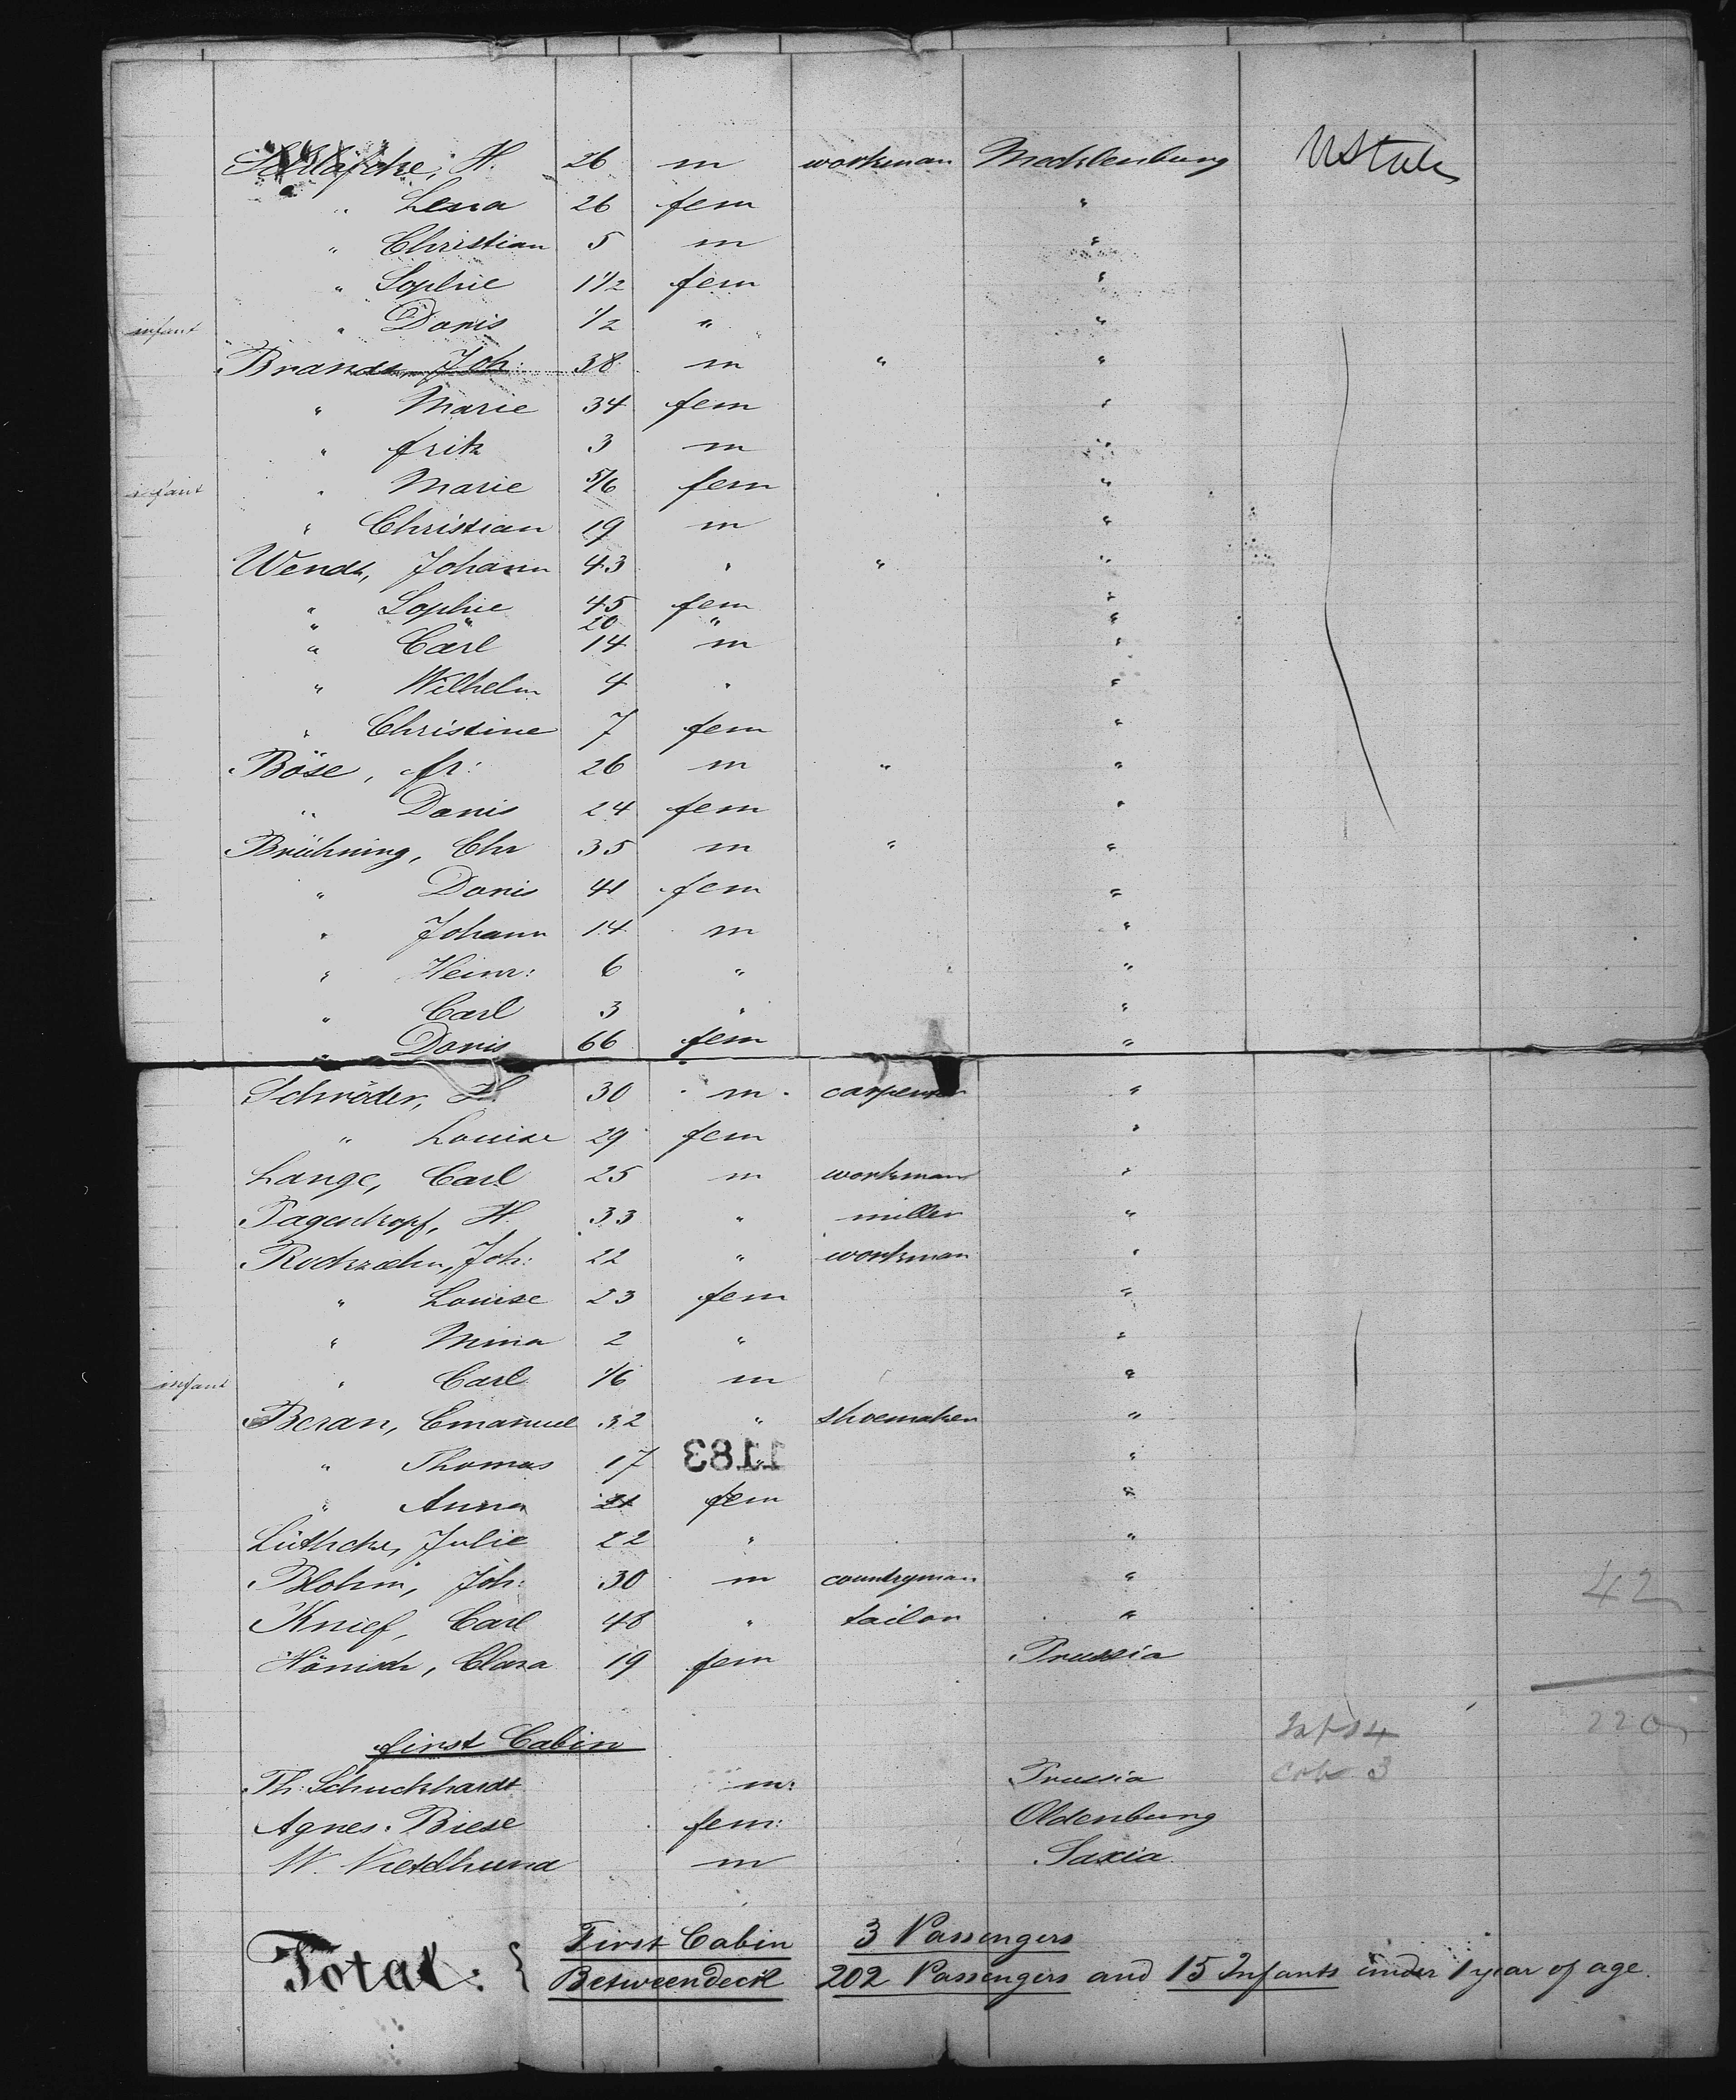 H. 26 m workman Mecklenburg U States
" Lena 26 fem "
" Christian 5 m "
" Sophie 1 1/2 fem "
infant " Doris 1/2 " "
Brandt, Joh: 38 m " "
" Marie 34 fem "
" Fritz 3 m "
infant " Marie 5/6 fem "
" Christian 19 m "
Wendt, Johann 43 " " "
" Sophie 45 fem "
" " 20 " "
" Carl 14 m "
" Wilhelm 4 " "
" Christine 7 fem "
Böse, Fr: 26 m " "
" Doris 24 fem "
Brühning, Chr 35 m " "
" Doris 41 fem "
" Johann 14 m "
" Heinr: 6 " "
" Carl 3 " "
" Doris 66 fem "
Schröder, 30 m carpenter "
" Louise 29 fem "
Lange, Carl 25 m workman "
Pagenkopf, H. 33 " miller "
Rockzahn, Joh: 22 " workman "
" Louise 23 fem "
" Mina 2 " "
infant " Carl 1/6 m "
Beran, Emanuel 32 " shoemaker "
" Thomas 17 1183 "
" Anna 21 fem "
Lüthcke, Julie 22 " "
Blohm, Joh: 30 m countryman " 42
Knief, Carl 48 " tailor "
Hänisch, Clara 19 fem Prussia
Infts 4 220
First Cabin
Th: Schuckhardt m: Prussia Cab 3
Agnes Biese fem: Oldenburg
W. m Saxia
Total: { First Cabin 3 Passengers
Betweendeck 202 Passengers and 15 Infants under 1 year of age.